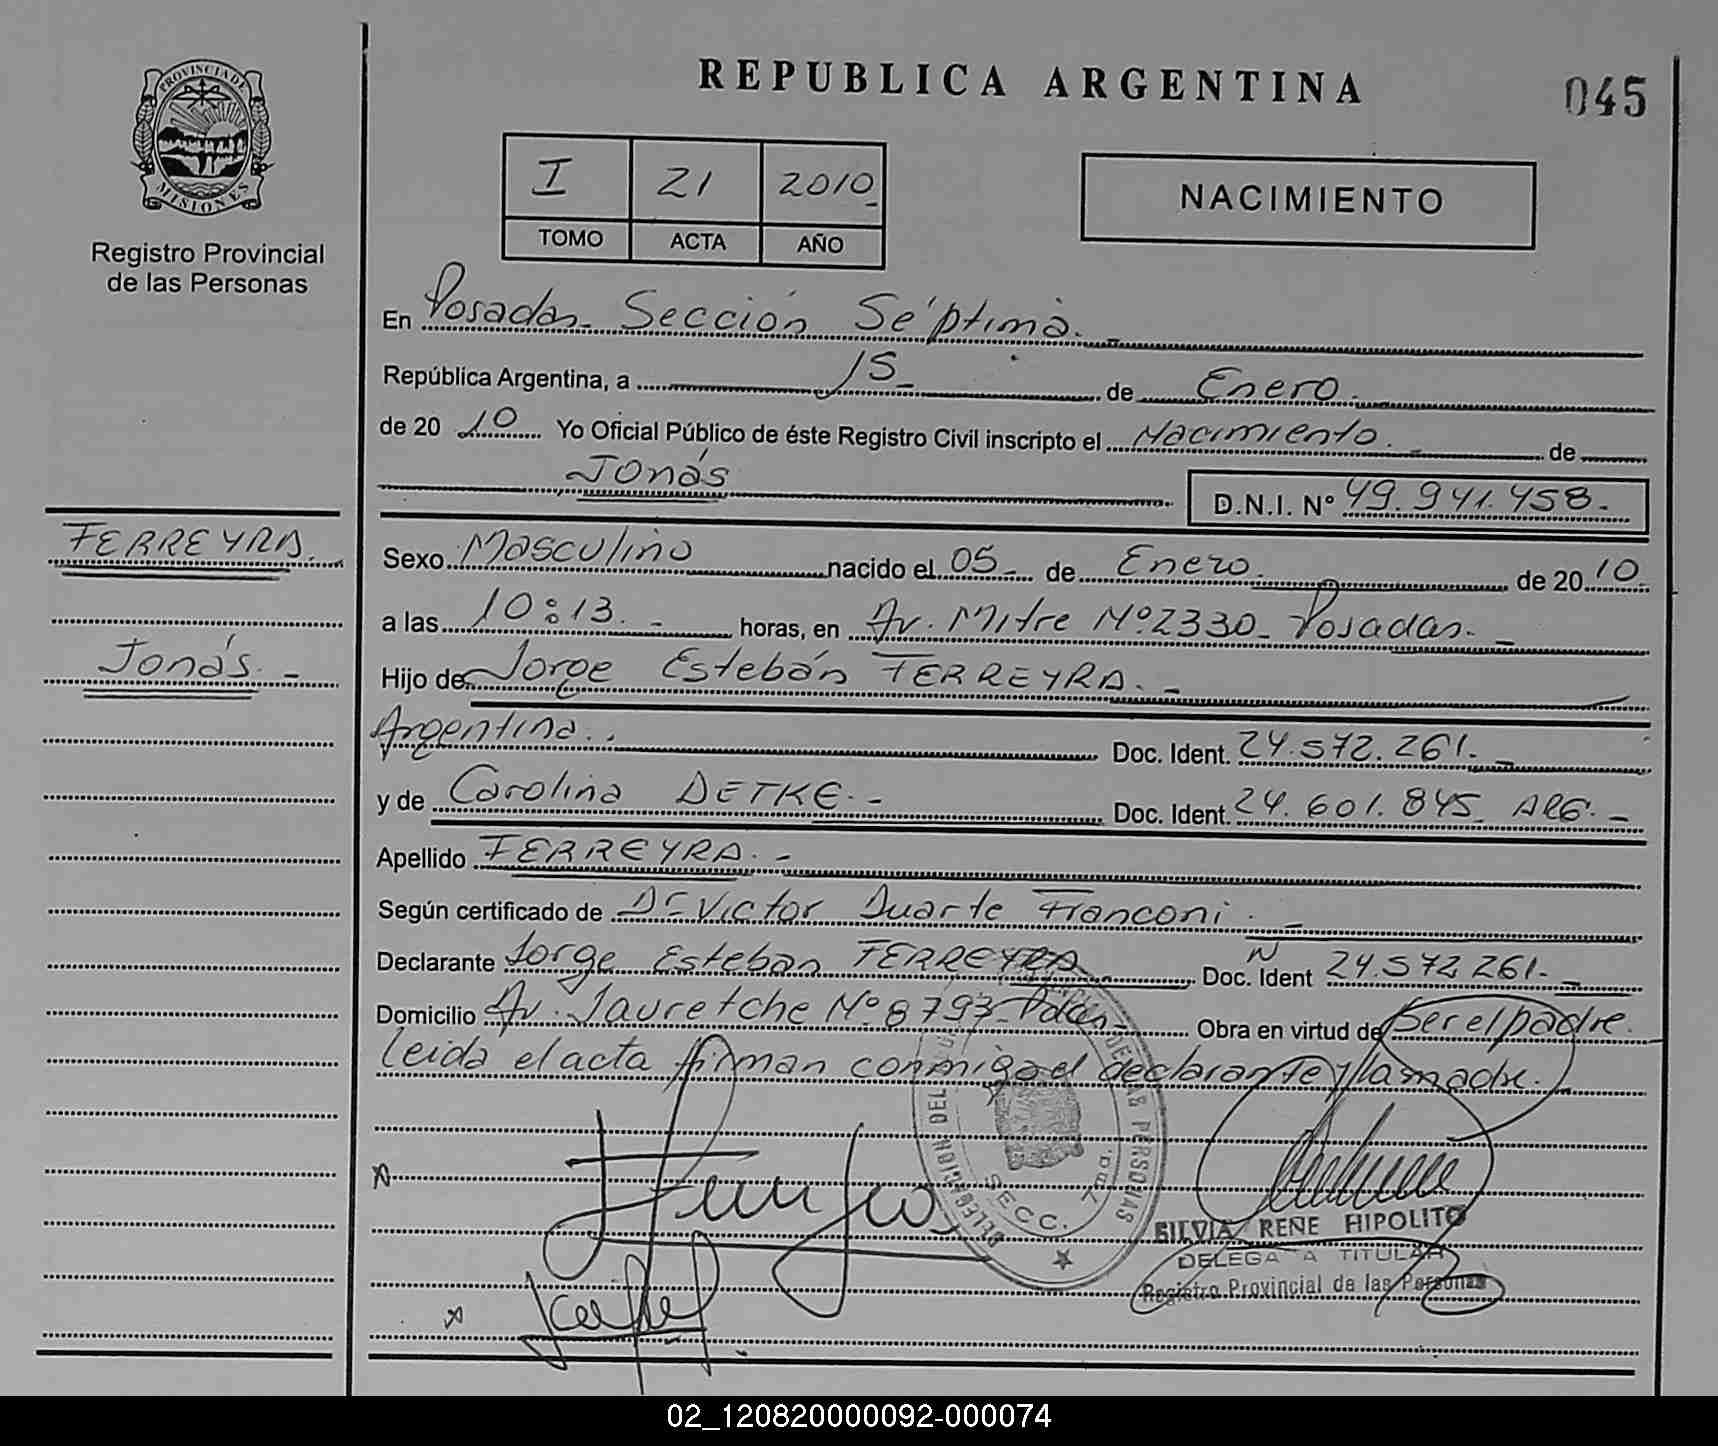 PROVINCIA DE
MISIONES
Registro Provincial
de las Personas
REPUBLICA ARGENTINA
045
I 21 2010
TOMO ACTA AÑO
NACIMIENTO
En Posadas Sección Séptima.
República Argentina, a 15 de Enero.
de 20 10 Yo Oficial Público de éste Registro Civil inscripto el Nacimiento. de
Jonás
D.N.I. Nº 49.941.458.-
FERREYRA.
Jonás. -
Sexo Masculino nacido el 05 de Enero. de 20 10.
a las 10:13. - horas, en Av. Mitre Nº 2330 - Posadas. -
Hijo de Jorge Estebán FERREYRA. -
Argentina. . Doc. Ident. 24.572.261. -
y de Carolina DETKE. - Doc. Ident. 24.601.845 ARG. -
Apellido FERREYRA. -
Según certificado de Dr Victor Duarte Franconi. -
Declarante Jorge Esteban FERREYRA Doc. Ident 24.572.261. -
Domicilio Av. Jauretche Nº 8793 - Pdas - Obra en virtud de Ser el padre.
leida el acta firman conmigo el declarante y la madre.
DELEGACION DEL PERSONAS
SECC. 7ma.
SILVIA RENE HIPOLITO
DELEGADA TITULAR
Registro Provincial de las Personas
02_120820000092-000074